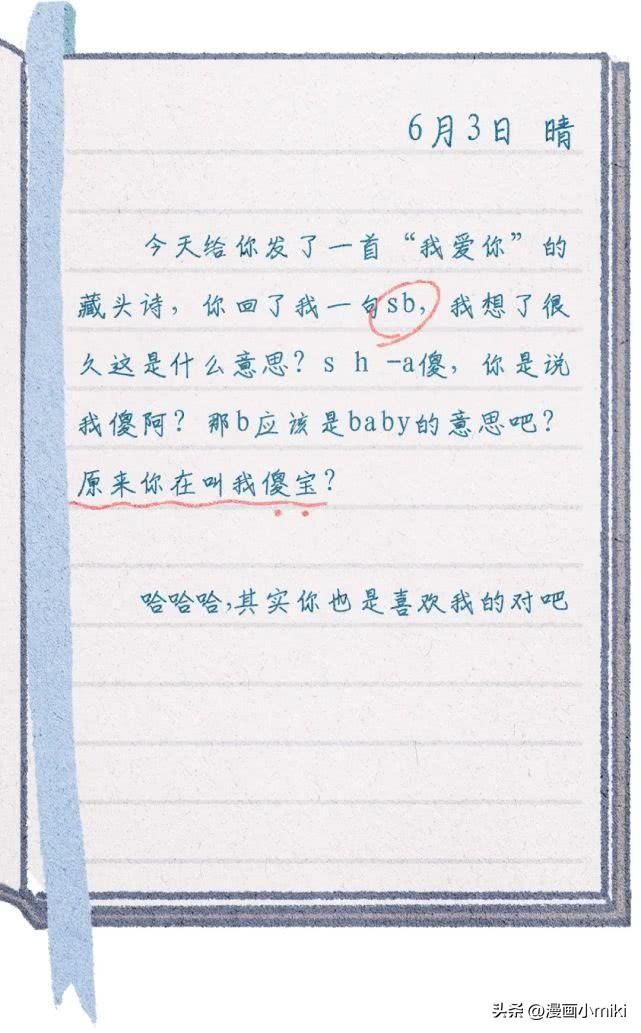 6月3日 晴
今天给你发了一首“我爱你”的
藏头诗，你回了我一句sb，我想了很
久这是什么意思？s h -a傻，你是说
我傻阿？那b应该是baby的意思吧？
原来你在叫我傻宝？
哈哈哈，其实你也是喜欢我的对吧
头条 @漫画小miki